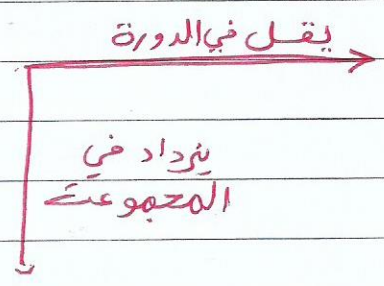 يقل في الدورة
يزداد في
المجموعة